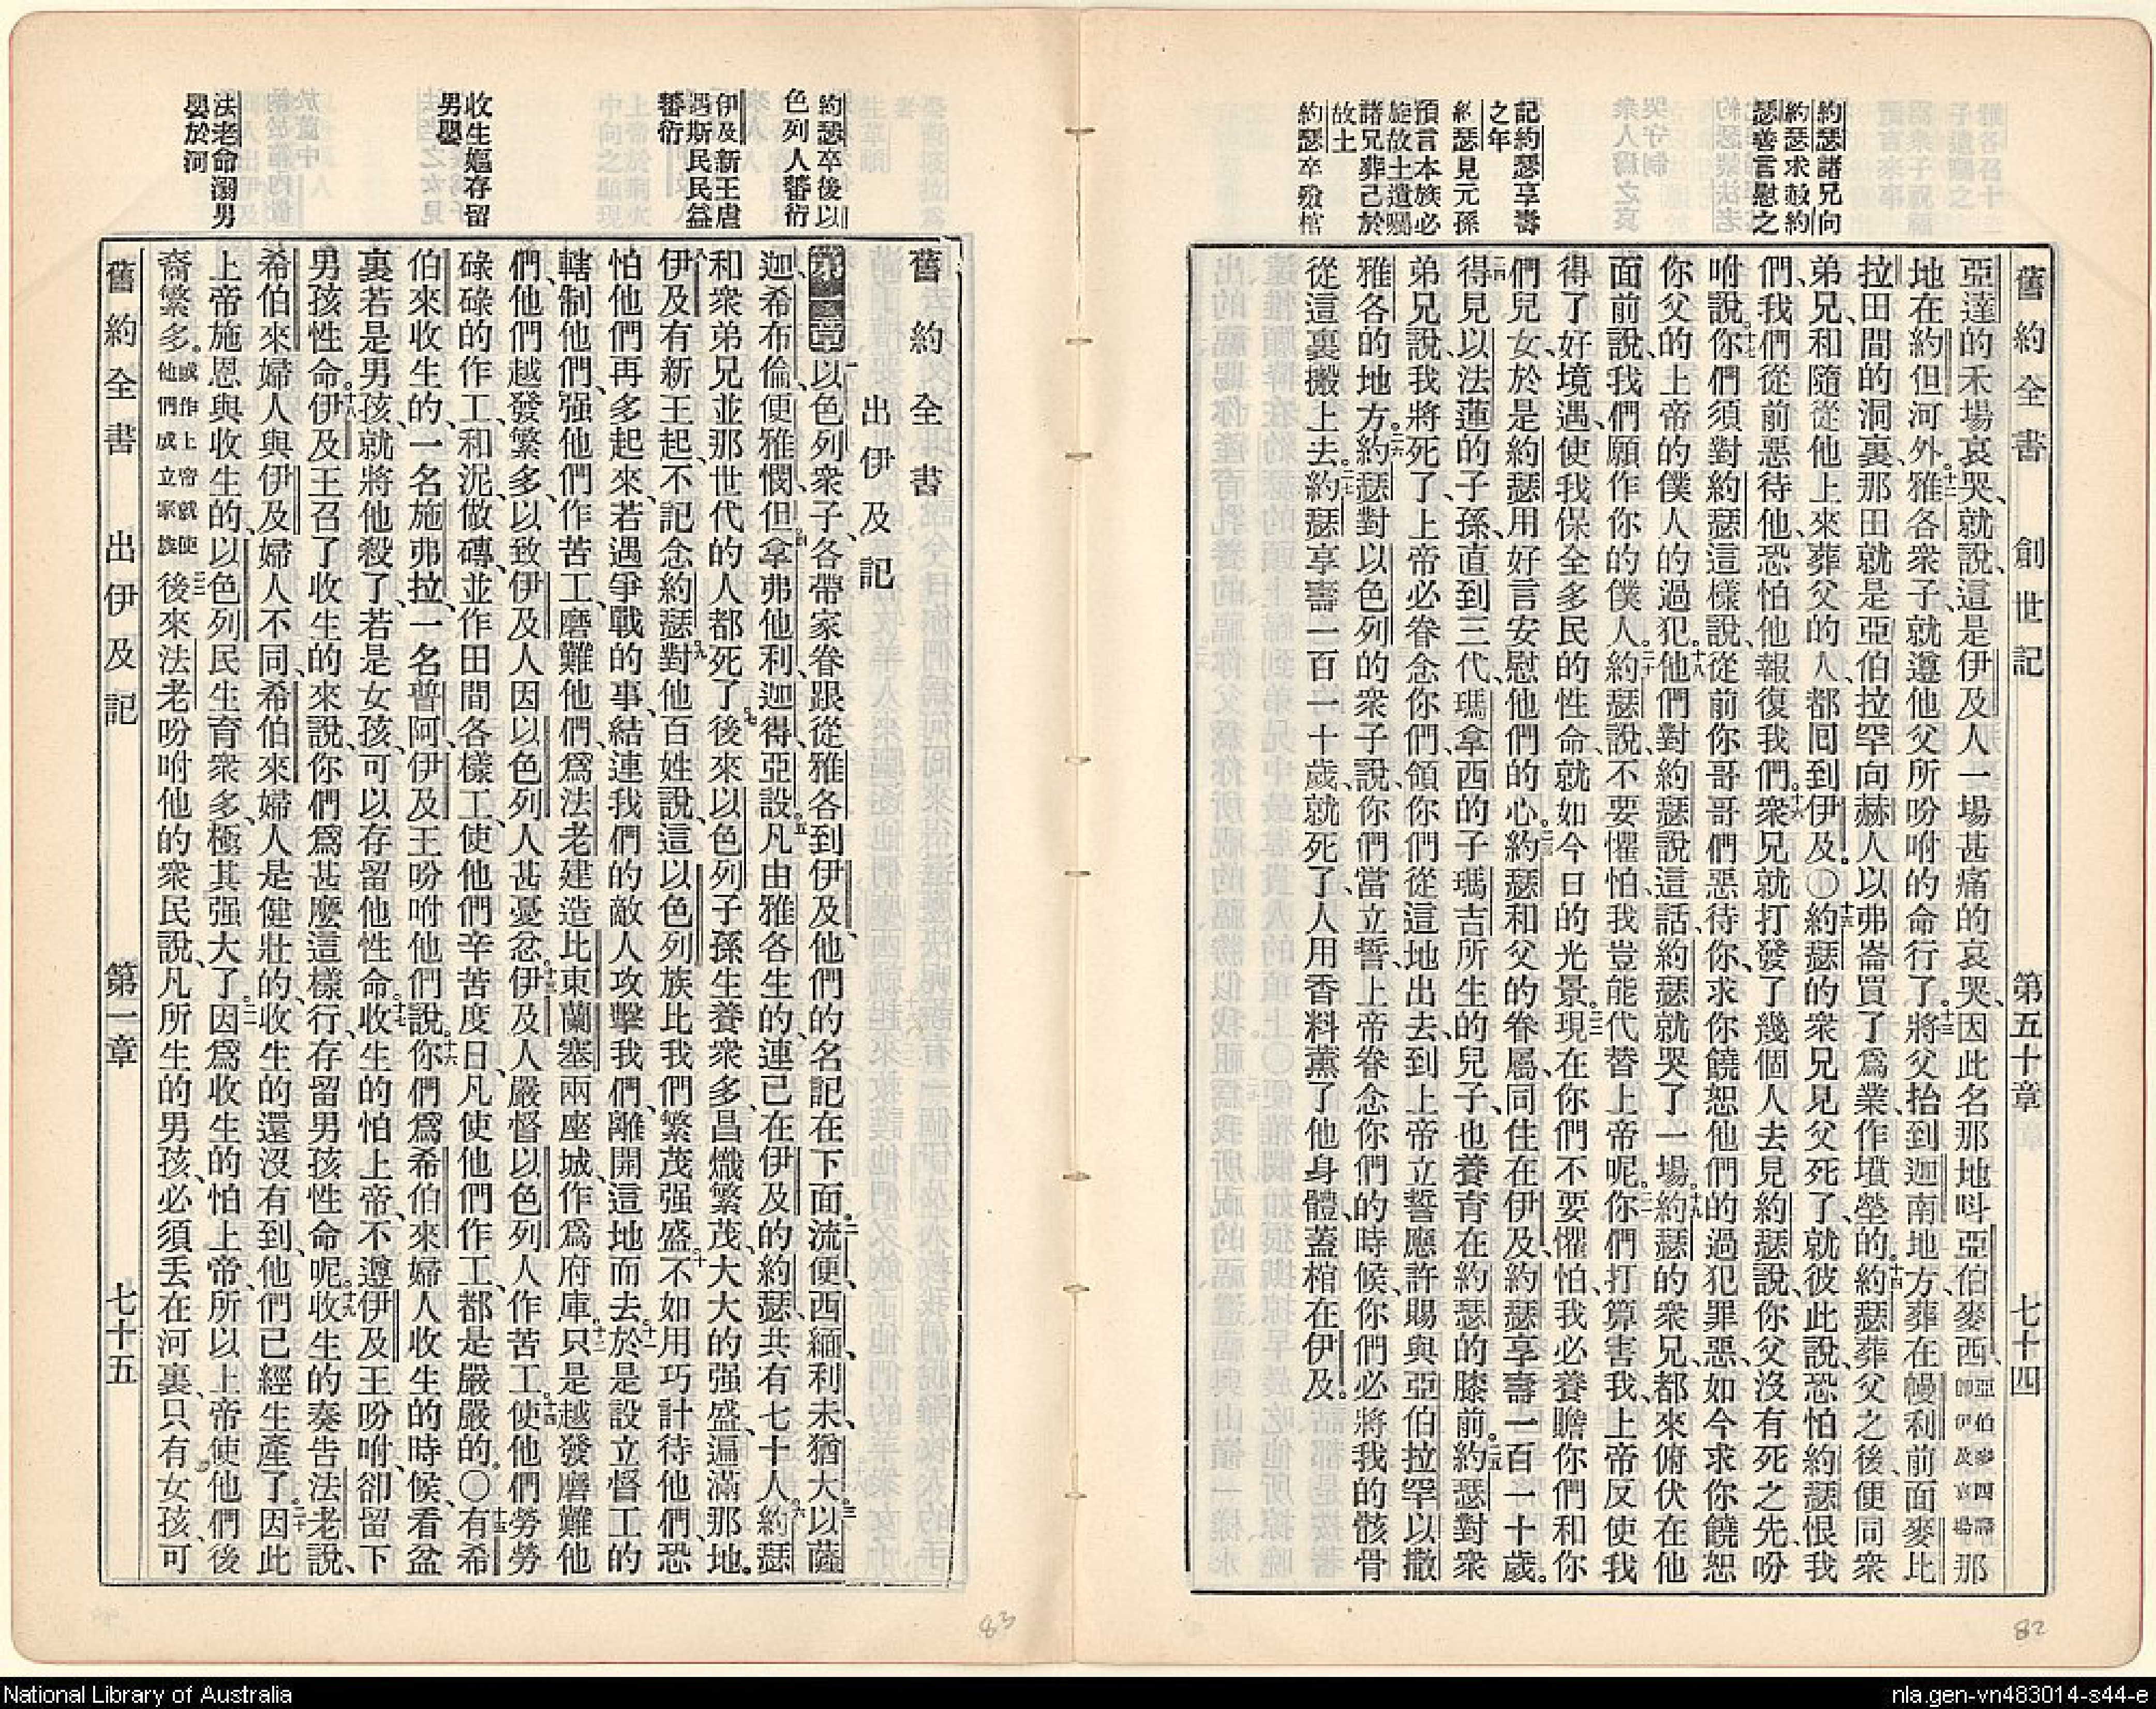 舊約全書 創世記 第五十章 七十四
約瑟諸兄向
約瑟求赦約
瑟善言慰之
記約瑟享壽
之年
約瑟見元孫
預言本族必
旋故土遺囑
諸兄葬己於
故土
約瑟卒殮棺
亞達的禾場哀哭、就說、這是伊及人一場甚痛的哀哭、因此名那地呌亞伯麥西、亞伯麥西譯卽伊及哀場那
地在約但河外。十二雅各衆子、就遵他父所吩咐的命行了。十三將父抬到迦南地方、葬在幔利前面麥比
拉田間的洞裏、那田就是亞伯拉罕向赫人以弗崙買了爲業、作墳塋的。十四約瑟葬父之後、便同衆
弟兄、和隨從他上來葬父的人、都囘到伊及。〇十五約瑟的衆兄見父死了、就彼此說、恐怕約瑟恨我
們、我們從前惡待他、恐怕他報復我們。十六衆兄就打發了幾個人去見約瑟說、你父沒有死之先、吩
咐說。十七你們須對約瑟這樣說、從前你哥哥們惡待你、求你饒恕他們的過犯罪惡、如今求你饒恕
你父的上帝的僕人的過犯。十八他們對約瑟說這話、約瑟就哭了一場。十九約瑟的衆兄、都來俯伏在他
面前說、我們願作你的僕人。二十約瑟說、不要懼怕、我豈能代替上帝呢。二一你們打算害我、上帝反使我
得了好境遇、使我保全多民的性命、就如今日的光景。二二現在你們不要懼怕、我必養贍你們和你
們兒女、於是約瑟用好言安慰他們的心。二三約瑟和父的眷屬、同住在伊及、約瑟享壽一百一十歲。
二四得見以法蓮的子孫、直到三代、瑪拿西的子瑪吉所生的兒子、也養育在約瑟的膝前。二五約瑟對衆
弟兄說、我將死了、上帝必眷念你們、領你們從這地出去、到上帝立誓應許賜與亞伯拉罕以撒
雅各的地方。二六約瑟對以色列的衆子說、你們當立誓、上帝眷念你們的時候、你們必將我的骸骨
從這裏搬上去。二七約瑟享壽一百一十歲、就死了、人用香料薰了他身體、蓋棺在伊及。
82
約瑟卒後以
色列人蕃衍
伊及新王虐
遇斯民民益
蕃衍
收生嫗存留
男嬰
法老命溺男
嬰於河
舊約全書
出伊及記
第一章一以色列衆子、各帶家眷跟從雅各到伊及、他們的名記在下面。二流便、西緬、利未、猶大。三以薩
迦、希布倫、便雅憫、但、四拿弗他利、迦得、亞設。五凡由雅各生的、連已在伊及的約瑟、共有七十人。六約瑟
和衆弟兄、並那世代的人都死了。七後來以色列子孫生養衆多、昌熾繁茂、大大的强盛、遍滿那地。
八伊及有新王起、不記念約瑟。九對他百姓說、這以色列族比我們繁茂强盛。十不如用巧計待他們、恐
怕他們再多起來、若遇爭戰的事、結連我們的敵人攻擊我們、離開這地而去。十一於是設立督工的
轄制他們、强他們作苦工、磨難他們、爲法老建造比東蘭塞兩座城、作爲府庫。十二只是越發磨難他
們、他們越發繁多、以致伊及人因以色列人甚憂忿。十三伊及人嚴督以色列人作苦工。十四使他們勞勞
碌碌的作工、和泥、做磚、並作田間各樣工、使他們辛苦度日、凡使他們作工、都是嚴嚴的。〇十五有希
伯來收生的、一名施弗拉、一名普阿、伊及王吩咐他們說。十六你們爲希伯來婦人收生的時候、看盆
裏若是男孩、就將他殺了、若是女孩、可以存留他性命。十七收生的怕上帝、不遵伊及王吩咐、卻留下
男孩性命。十八伊及王召了收生的來說、你們爲甚麼這樣行、存留男孩性命呢。十九收生的奏告法老說、
希伯來婦人與伊及婦人不同、希伯來婦人是健壯的、收生的還沒有到、他們已經生產了。二十因此
上帝施恩與收生的、以色列民生育衆多、極其强大了。二一因爲收生的怕上帝、所以上帝使他們後
裔繁多。或作上帝就使他們成立家族二二後來法老吩咐他的衆民說、凡所生的男孩、必須丟在河裏、只有女孩、可
舊約全書 出伊及記 第一章 七十五
83
National Library of Australia
nla.gen-vn483014-s44-e